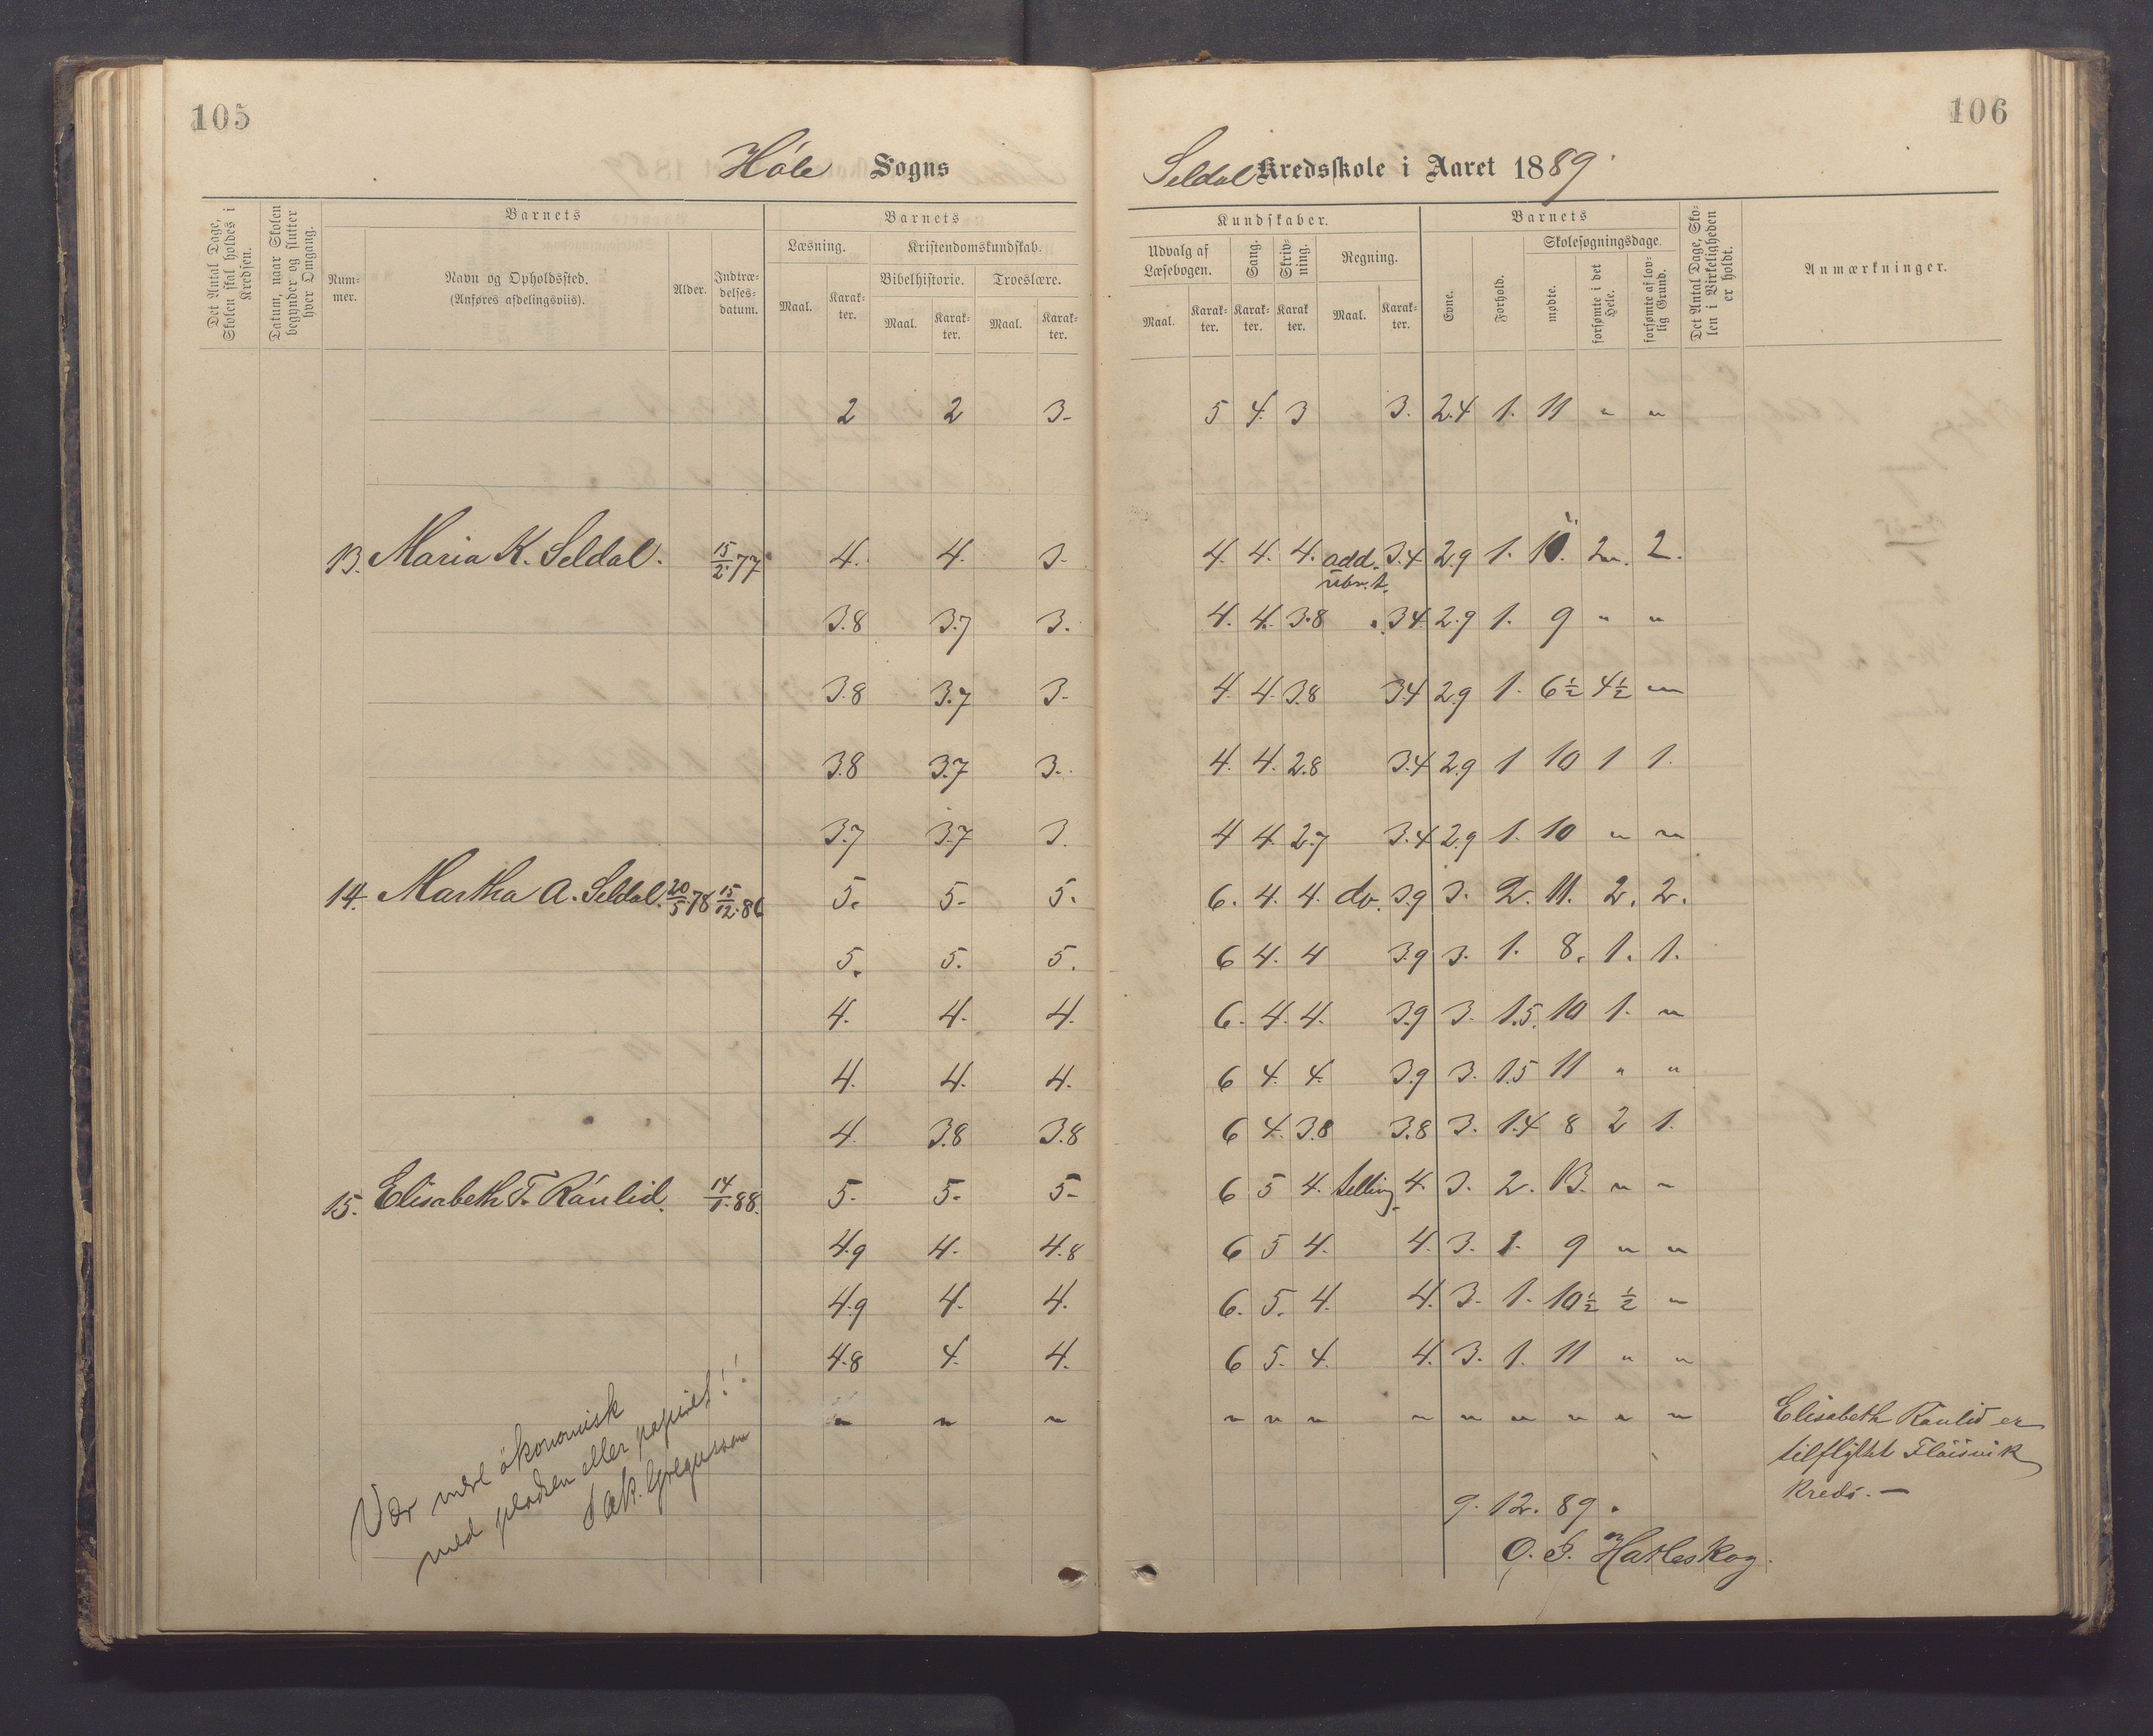 105
Høle Sogns
Det Antal Dage, Skolen skal holdes i Kredsen.
Datum, naar Skolen begynder og slutter hver Omgang.
Barnets
Num-
mer.
Navn og Opholdssted.
(Anføres afdelingsviis).
Alder.
Indtræ-
delses-
datum.
Barnets
Læsning.
Kristendomskundskab.
Bibelhistorie.
Troeslære.
Maal.
Karak-
ter.
Maal.
Karak-
ter.
Maal.
Karak-
ter.
2 2 3-
13. Maria K. Seldal. 15/2.77 4. 4. 3.
3.8 3.7 3.
3.8 3.7 3-
3.8 3.7 3.
3.7 3.7 3.
14. Martha A. Seldal. 20/5.78 15/12.86 5. 5- 5.
5. 5. 5.
4. 4. 4.
4. 4. 4.
4. 3.8 3.8
15. Elisabeth T. Raulid. 14/1.88. 5. 5- 5-
4.9 4. 4.8
4.9 4. 4.
4.8 4. 4.
" " "
Vær mere økonomisk
med pladsen eller papiret!!
106
Seldal Kredsskole i Aaret 1889.
Kundskaber.
Udvalg af
Læsebogen.
Sang.
Skriv-
ning.
Regning.
Maal.
Karak-
ter.
Karak-
ter.
Karak
ter.
Maal.
Karak-
ter.
Barnets
Evne.
Forhold.
Skolesøgningsdage.
mødte.
forsømte i det
Hele.
forsømte af lov-
lig Grund.
Det Antal Dage, Sko-
len i Virkeligheden
er holdt.
Anmærkninger.
5 4. 3 3. 2.4 1. 11 " "
4. 4. 4. add. 3.4 2.9 1. 10. 2. 2.
4. 4. 3.8 " 3.4 2.9 1. 9 " "
4. 4. 3.8 3.4 2.9 1. 6½ 4½ "
4. 4. 2.8 3.4 2.9 1 10 1 1.
4 4. 2.7 3.4 2.9 1. 10 " "
6. 4. 4. do. 3.9 3. 2. 11. 2. 2.
6 4. 4 3.9 3. 1. 8. 1. 1.
6. 4. 4. 3.9 3. 1.5. 10 1. "
6 4. 4. 3.9 3. 1.5 11 " "
6 4. 3.8 3.8 3. 1.4 8 2 1.
6 5 4. telling. 4. 3. 2. 13. " "
6 5 4. 4. 3. 1. 9 " "
6. 5. 4. 4. 3. 1. 10½ ½ "
6 5. 4. 4. 3. 1. 11 " "
" " " " " " " " "
Elisabeth Raulid er
tilflyttet Fløisvik
Kreds. —
9. 12. 89.
O. J. Hatleskog.